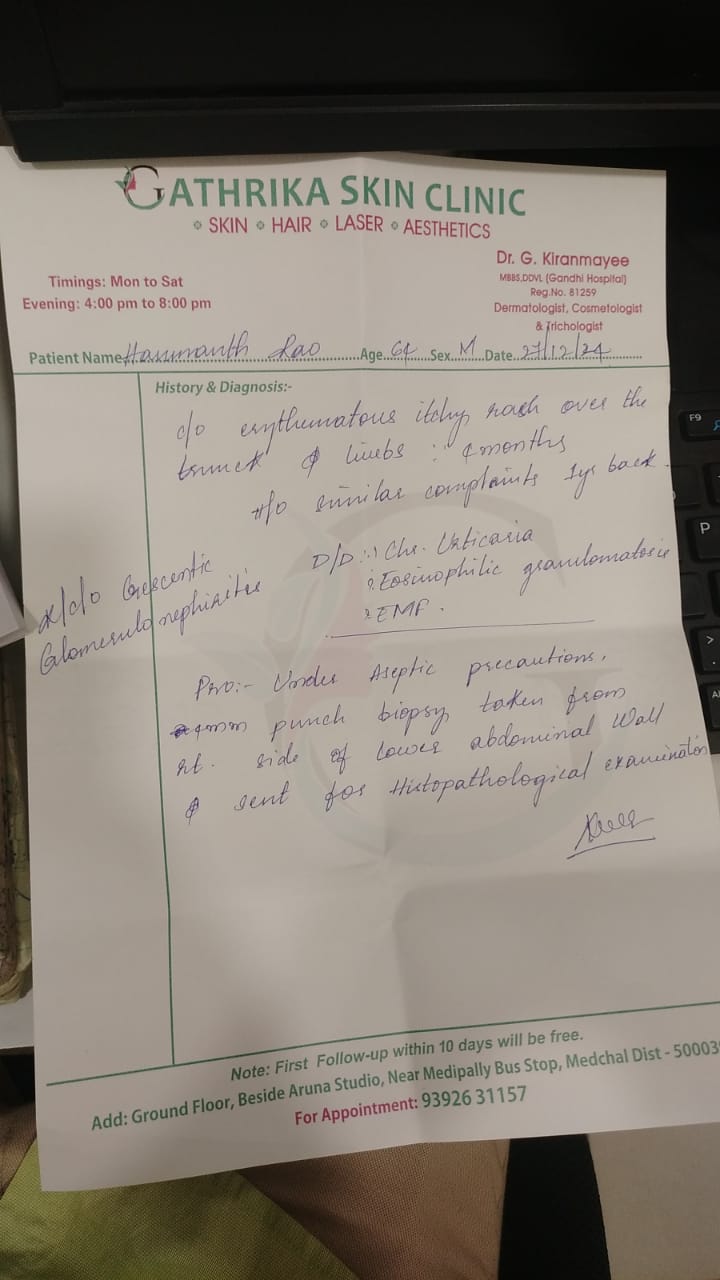 GATHRIKA SKIN CLINIC
SKIN HAIR LASER AESTHETICS
Dr. G. Kiranmayee
MBBS,DDVL (Gandhi Hospital)
Reg.No. 81259
Dermatologist, Cosmetologist
& Trichologist
Timings: Mon to Sat
Evening: 4:00 pm to 8:00 pm
Patient Name Hanmanth Rao Age 64 Sex M Date 27/12/24
History & Diagnosis:-
c/o erythematous itchy rash over the
trunck & limbs : 4 months
H/o similar complaints 1yr back.
D/D :- Chr. Urticaria
? Eosinophilic granulomatosis
? EMF.
k/c/o Crescentic
Glomerulo nephiritis
Pro:- Under Aseptic precautions,
4mm punch biopsy taken from
rt. side of lower abdominal wall
& sent for Histopathological examination
Note: First Follow-up within 10 days will be free.
Add: Ground Floor, Beside Aruna Studio, Near Medipally Bus Stop, Medchal Dist - 50003
For Appointment: 93926 31157
F9
P